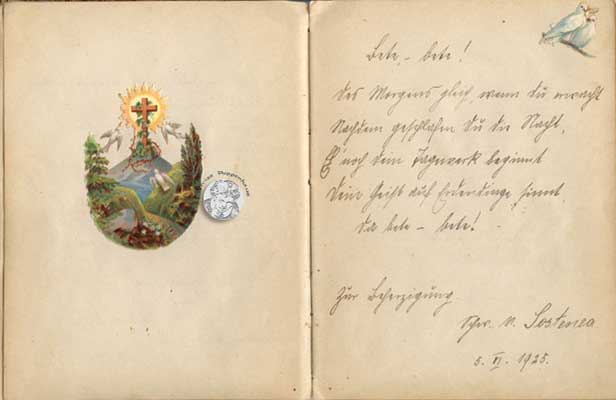 Puppenhaus
Bete, – bete!
Des Morgens gleich, wenn du erwacht
Nachdem geschlafen du die Nacht,
Eh' noch dein Tagewerk beginnt
Dein Geist auf Erdendinge sinnt,
da bete – bete!
Zur Beherzigung.
Schw. M. Sostenea
5. VI. 1925.